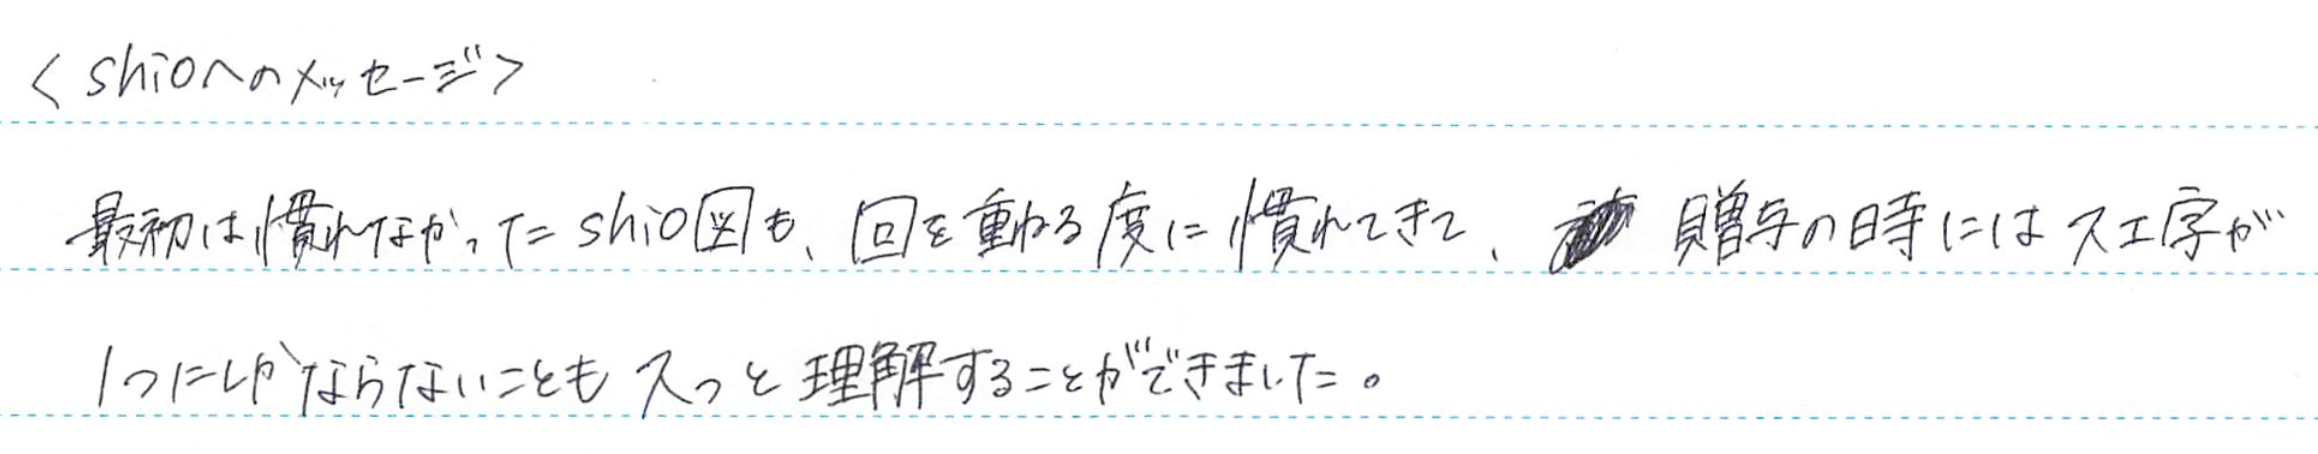 <shioへのメッセージ>
最初は慣れなかったshio図も、回を重ねる度に慣れてきて、贈与の時にはスエ字が
1つにしかならないこともスっと理解することができました。